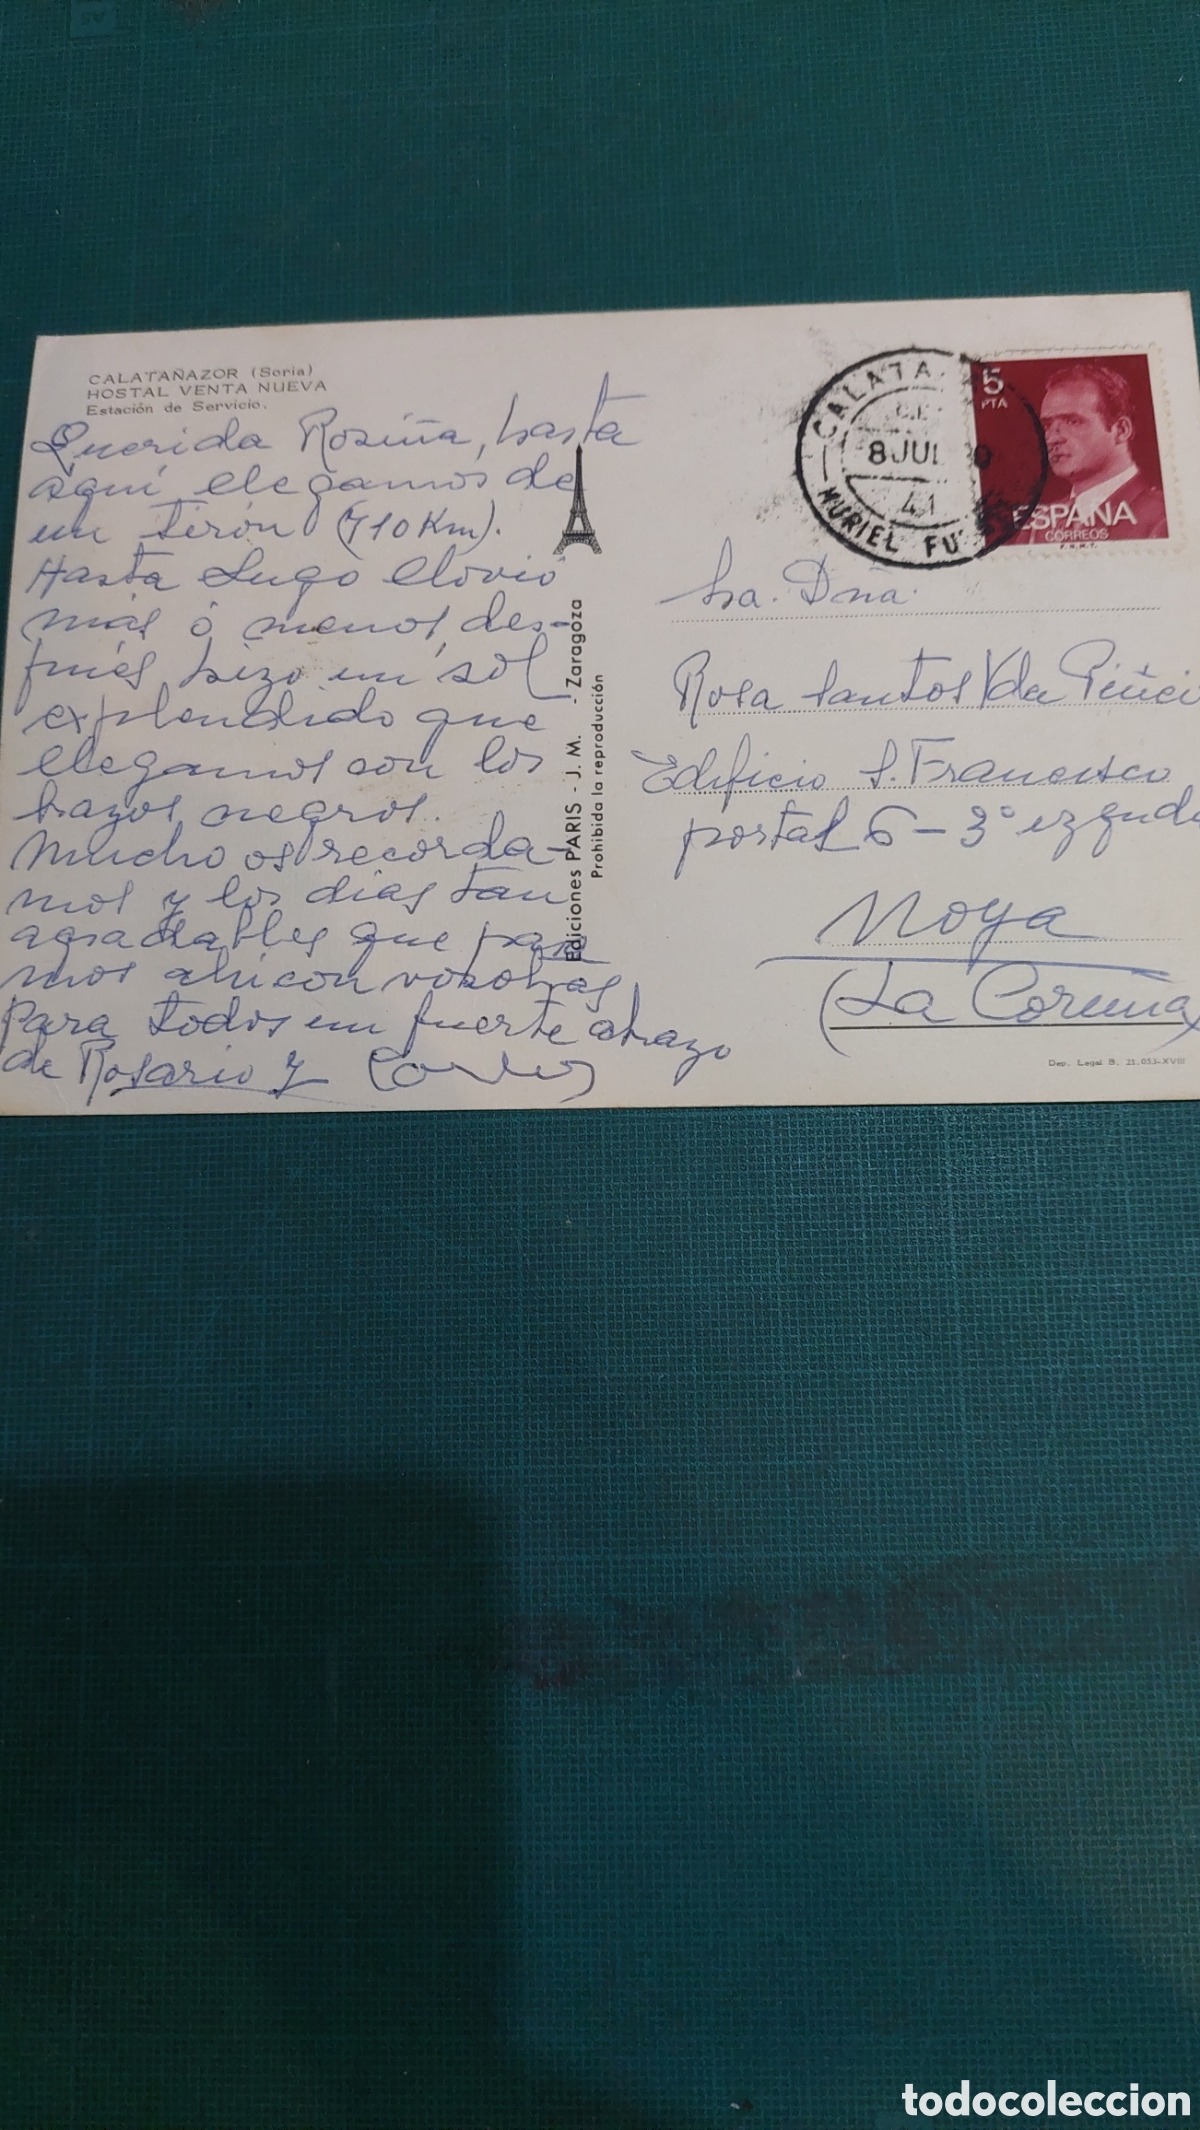 CALATAÑAZOR (Soria)
HOSTAL VENTA NUEVA
Estación de Servicio.
Querida Rosiña, hasta
aquí llegamos de
un tirón (710 Km).
Hasta Lugo llovió
más ó menos, des-
pués hizo un sol
explendido que
llegamos con los
brazos negros.
Mucho os recorda-
mos y los días tan
agradables que pasa
mos ahí con vosotras
Para todos un fuerte abrazo
de Rosario y
Ediciones PARIS - J. M. - Zaragoza
Prohibida la reproducción
CALATA
8 JUL 0
41
MURIEL FU
5
PTA
ESPAÑA
CORREOS
F.N.M.T.
Sra. Dña.
Rosa Santos Vda
Edificio S. Francisco
portal 6 - 3º izquda
Noya
(La Coruña)
Dep. Legal B. 21.053-XVIII
todocoleccion